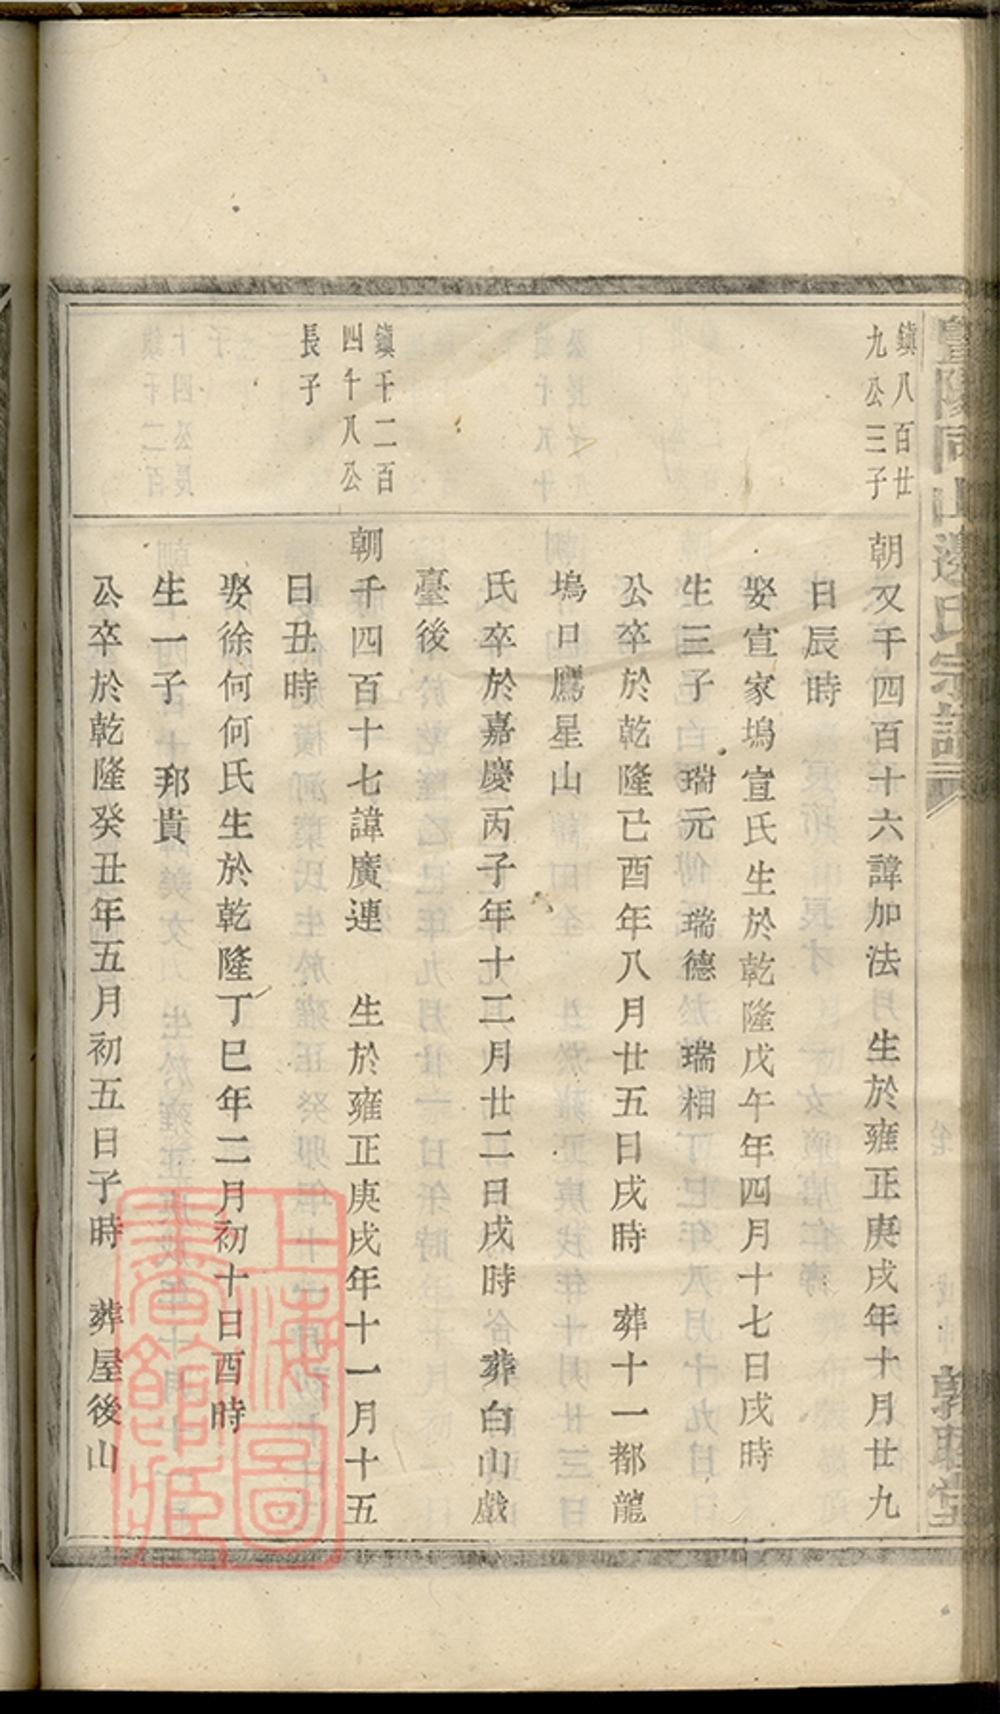 暨陽同山邊氏宗譜
敦睦堂
鎮八百廿
九公三子
朝又千四百十六諱加法 生於雍正庚戌年十月廿九
日辰時
娶宣家塢宣氏生於乾隆戊午年四月十七日戌時
生三子 瑞元 瑞德 瑞相
公卒於乾隆己酉年八月廿五日戌時 葬十一都龍
塢口鷹星山
氏卒於嘉慶丙子年十二月廿二日戌時 葬白山戲
臺後
鎮千二百
四千八公
長子
朝千四百十七諱廣連 生於雍正庚戌年十一月十五
日丑時
娶徐何何氏生於乾隆丁巳年二月初十日酉時
生一子 邦貴
公卒於乾隆癸丑年五月初五日子時 葬屋後山
上海圖
書館藏